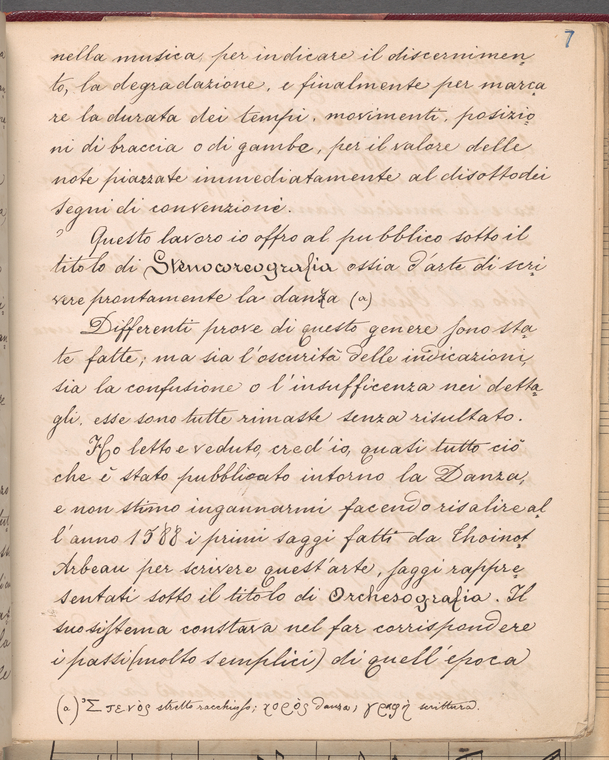 7
nella musica, per indicare il discernimen
to, la degradazione, e finalmente per marca
re la durata dei tempi, movimenti, posizio
ni di braccia o di gambe, per il valore delle
note piazzate immediatamente al disotto dei
segni di convenzione.
Questo lavoro io offro al pubblico sotto il
titolo di Stenocoreografia ossia d'arte di scri
vere prontamente la danza (a)
Differenti prove di questo genere sono sta
te fatte; ma sia l'oscurità delle indicazioni,
sia la confusione o l'insufficenza nei detta
gli, esse sono tutte rimaste senza risultato.
Ho letto e veduto, cred'io, quasi tutto ciò
che è stato pubblicato intorno la Danza,
e non stimo ingannarmi facendo risalire al
l'anno 1588 i primi saggi fatti da Thoinot
Arbeau per scrivere quest'arte, saggi rappre
sentati sotto il titolo di Orchesografia. Il
suo sistema constava nel far corrispondere
i passi (molto semplici) di quell'epoca
(a) Στενòς stretto racchiuso; χορòς danza; γραφὴ scrittura.